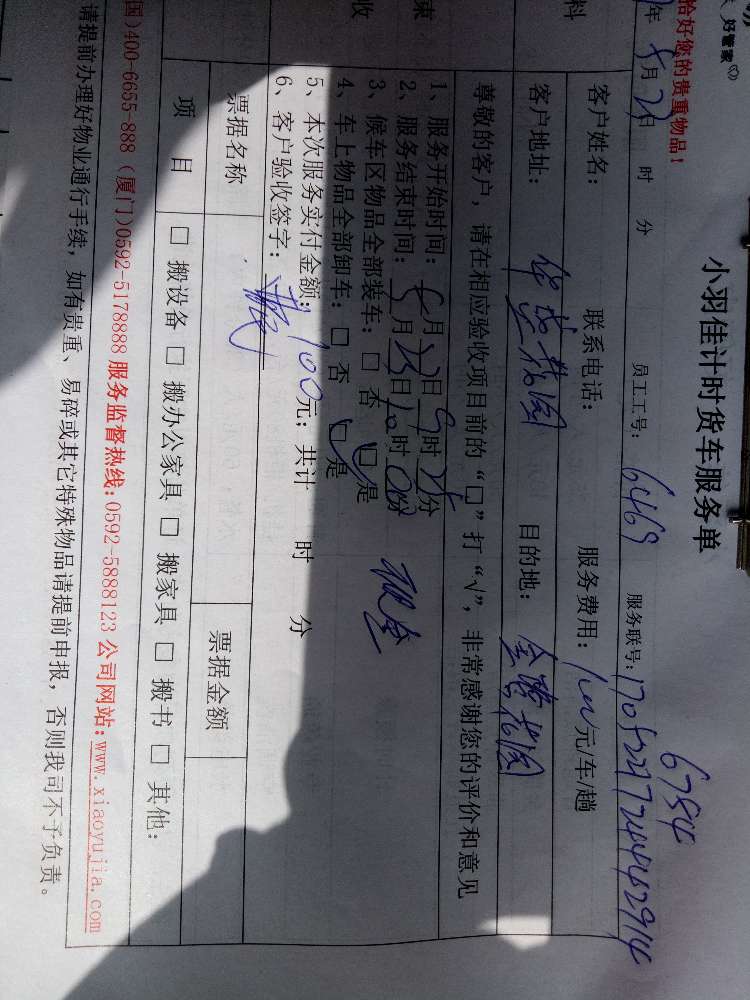 好管家
小羽佳计时货车服务单
恰好您的贵重物品!
年 5月23日 时 分 员工工号: 6469 服务联号: 6784
客户姓名: 联系电话: 服务费用: 100元/车/趟
客户地址: 目的地:
尊敬的客户,请在相应验收项目前的“□”打“√”,非常感谢您的评价和意见
1、服务开始时间: 5月23日9时25分
2、服务结束时间: 5月23日10时00分 现金
3、候车区物品全部装车: □ 否 □ 是
4、车上物品全部卸车: □ 否 □ 是
5、本次服务实付金额: 100元; 共计 时 分
6、客户验收签字:
票据名称 票据金额
项 目 □ 搬设备 □ 搬办公家具 □ 搬家具 □ 搬书 □ 其他:
国)400-6655-888 (厦门)0592-5178888 服务监督热线:0592-5888123 公司网站:www.xiaoyujia.com
请提前办理好物业通行手续,如有贵重、易碎或其它特殊物品请提前申报,否则我司不予负责。